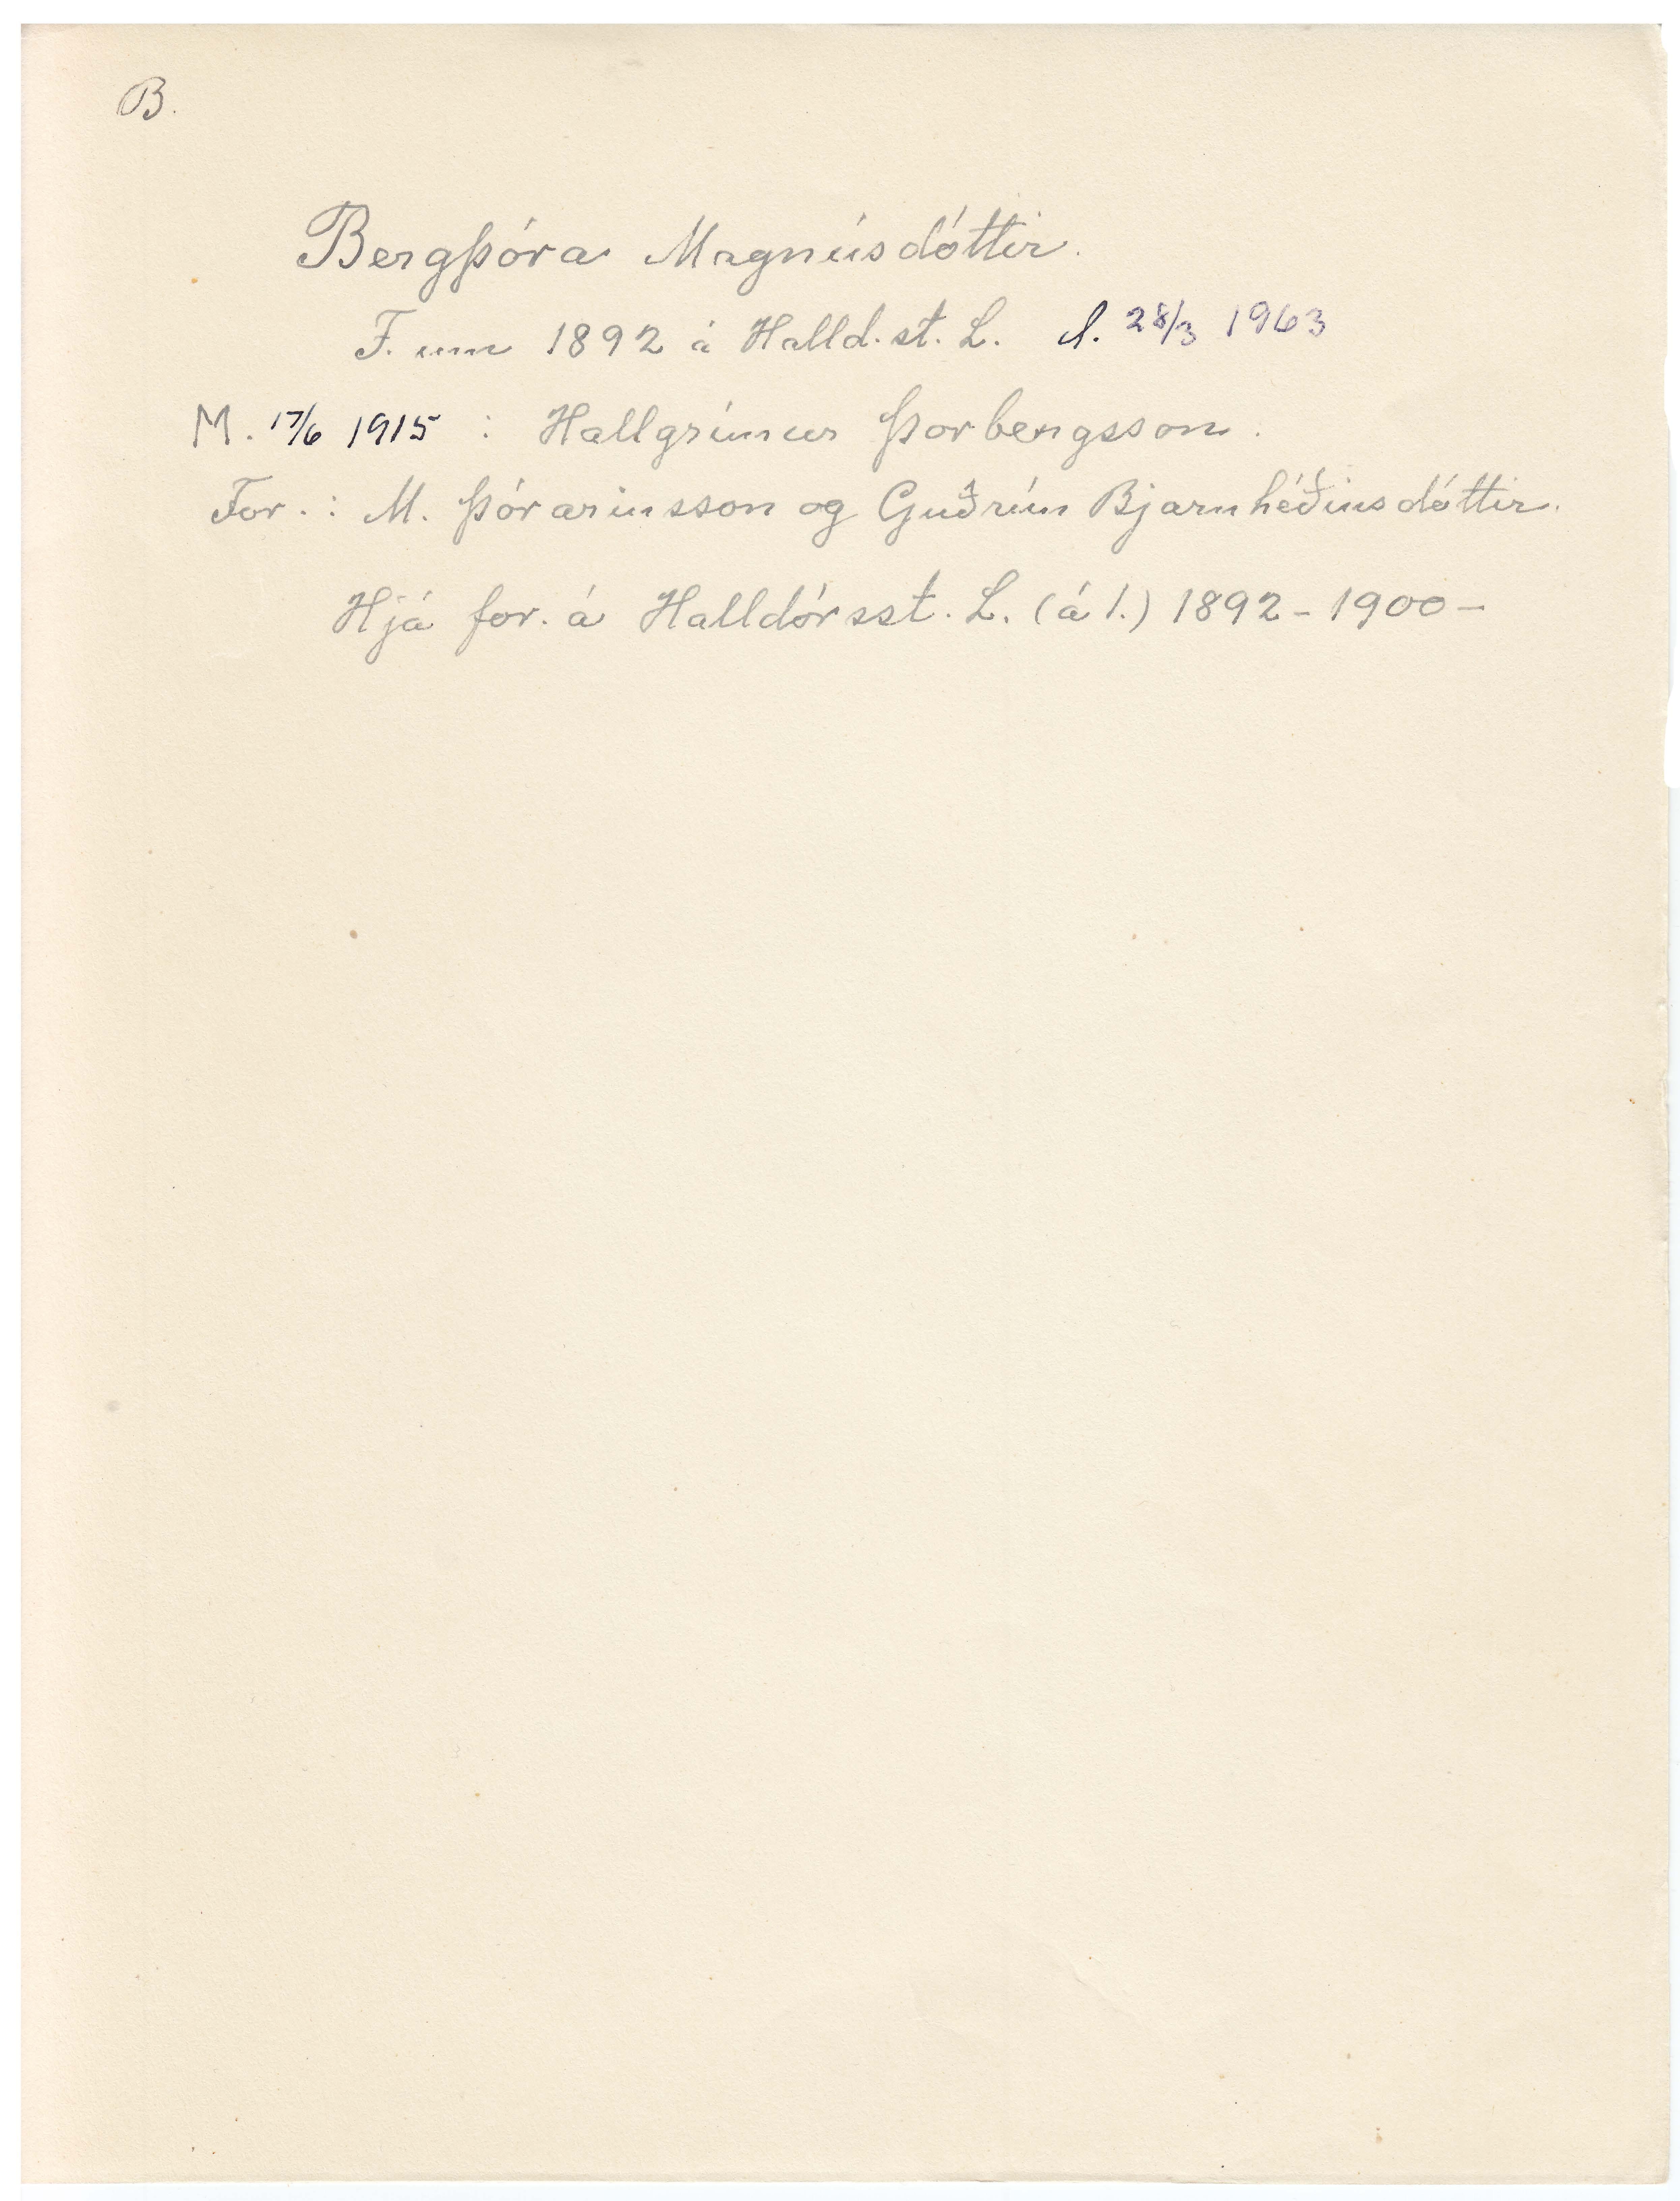 B.
Bergþóra Magnúsdóttir.
F. um 1892 á Halld.st. L. d. 28/3 1963
M. 17/6 1915 : Hallgrímur Þorbergsson.
For. : M. Þórarinsson og Guðrún Bjarnhéðinsdóttir.
Hjá for. á Halldórsst. L. (á 1.) 1892 - 1900 -